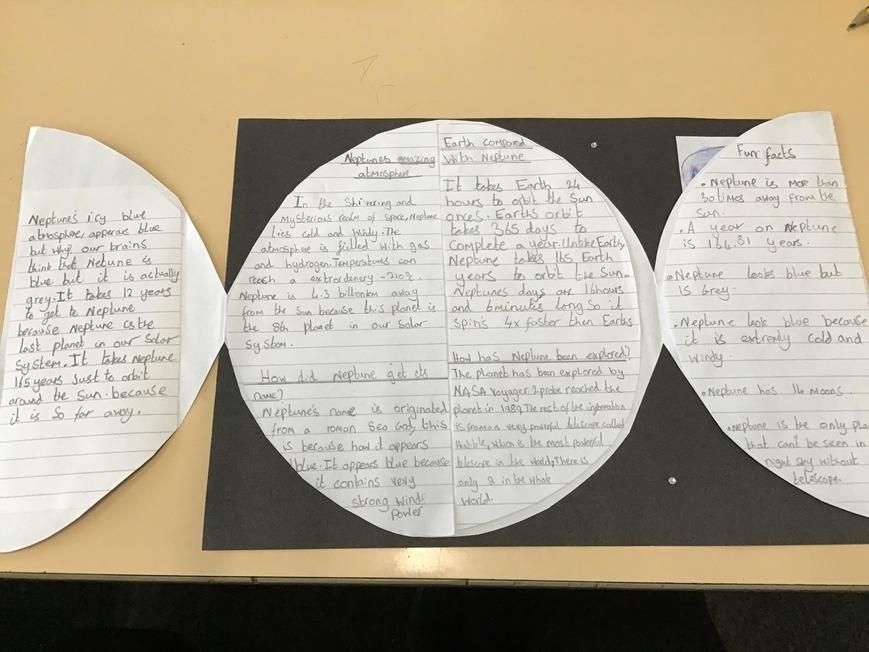 Neptune's icy blue
atmosphere, appears blue
but why our brains
think that Netune is
blue but it is actually
grey. It takes 12 years
to get to Neptune
because Neptune is the
last planet in our Solar
System. It takes Neptune
165 years Just to orbit
around the Sun. because
it is so far away.
Neptunes amazing
atmosphere
In the Shivering and
Mysterious realm of space, Neptune
lies cold and windy. The
atmosphere is filled with gas
and hydrogen. Temperatures can
reach a extraordenery -210°.
Neptune is 4.3 billionkm away
from the Sun because this planet is
the 8th planet in our Solar
System.
How did Neptune get its
name?
Neptune's name is originated
from a roman Sea God, this
is because how it appears
blue. It appears blue because
it contains very
strong wind
Power
Earth compared
With Neptune
It takes Earth 24
hours to orbit the Sun
onces. Earths orbit
takes 365 days to
Complete a year. Unlike Earth,
Neptune takes 165 Earth
years to orbit the Sun.
Neptunes days are 16hours
and 6minutes long So it
spin's 4x faster then Earths
How has Neptune been explored?
The planet has been explored by
NASA Voyager 2 probe reached the
planet in 1989. The rest of the information
is from a very powerful telescope called
Hubble, which is the most powerful
telescope in the world, There is
only 2 in the whole
World.
Fun facts
• Neptune is more than
30 times away from the
Sun.
• A year on Neptune
is 164.81 years.
• Neptune looks blue but
is Grey.
• Neptune look blue because
it is extremly cold and
windy
• Neptune has 14 Moons.
• Neptune is the only
that can't be seen in
night sky without
telescope.